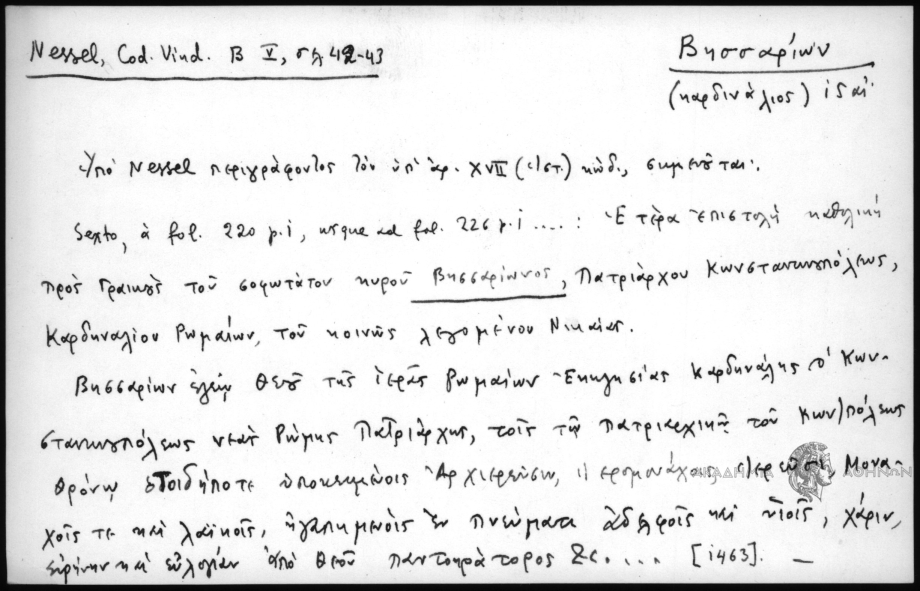 Nessel, Cod. Vind. B V, σελ 42-43
Βησσαρίων
(καρδινάλιος) ιδαί·
Ὑπό Nessel περιγράφοντος τόν ὑπ' ἀρ. XVII (ἱστ.) κώδ., σημειοῦται:
Sexto, à fol. 220 p.1, usque ad fol. 226 p.1 ....: Ἑτέρα ἐπιστολή καθολική
πρός Γραικούς τοῦ σοφωτάτου κυροῦ Βησσαρίωνος, Πατριάρχου Κωνσταντινουπόλεως,
Καρδηναλίου Ρωμαίων, τοῦ κοινῶς λεγομένου Νικαίας.
Βησσαρίων ἐλέῳ Θεοῦ τῆς ἱερᾶς Ρωμαίων Ἐκκλησίας Καρδηνάλης ὁ Κων-
σταντινουπόλεως νέας Ρώμης Πατριάρχης, τοῖς τῷ πατριαρχικῷ τοῦ Κων)πόλεως
Θρόνῳ ὁτοιδήποτε ὑποκειμένοις Ἀρχιερεῦσιν, ἱερομονάχοις, ἱερεῦσι, Μονα-
χοῖς τε καί λαϊκοῖς, ἠγαπημένοις ἐν πνεύματι ἀδελφοῖς καί υἱοῖς, χάριν,
εἰρήνην καί εὐλογίαν ἀπό Θεοῦ παντοκράτορος &c. ... [1463]. —
ΑΚΑΔΗΜΙΑ ΑΘΗΝΩΝ